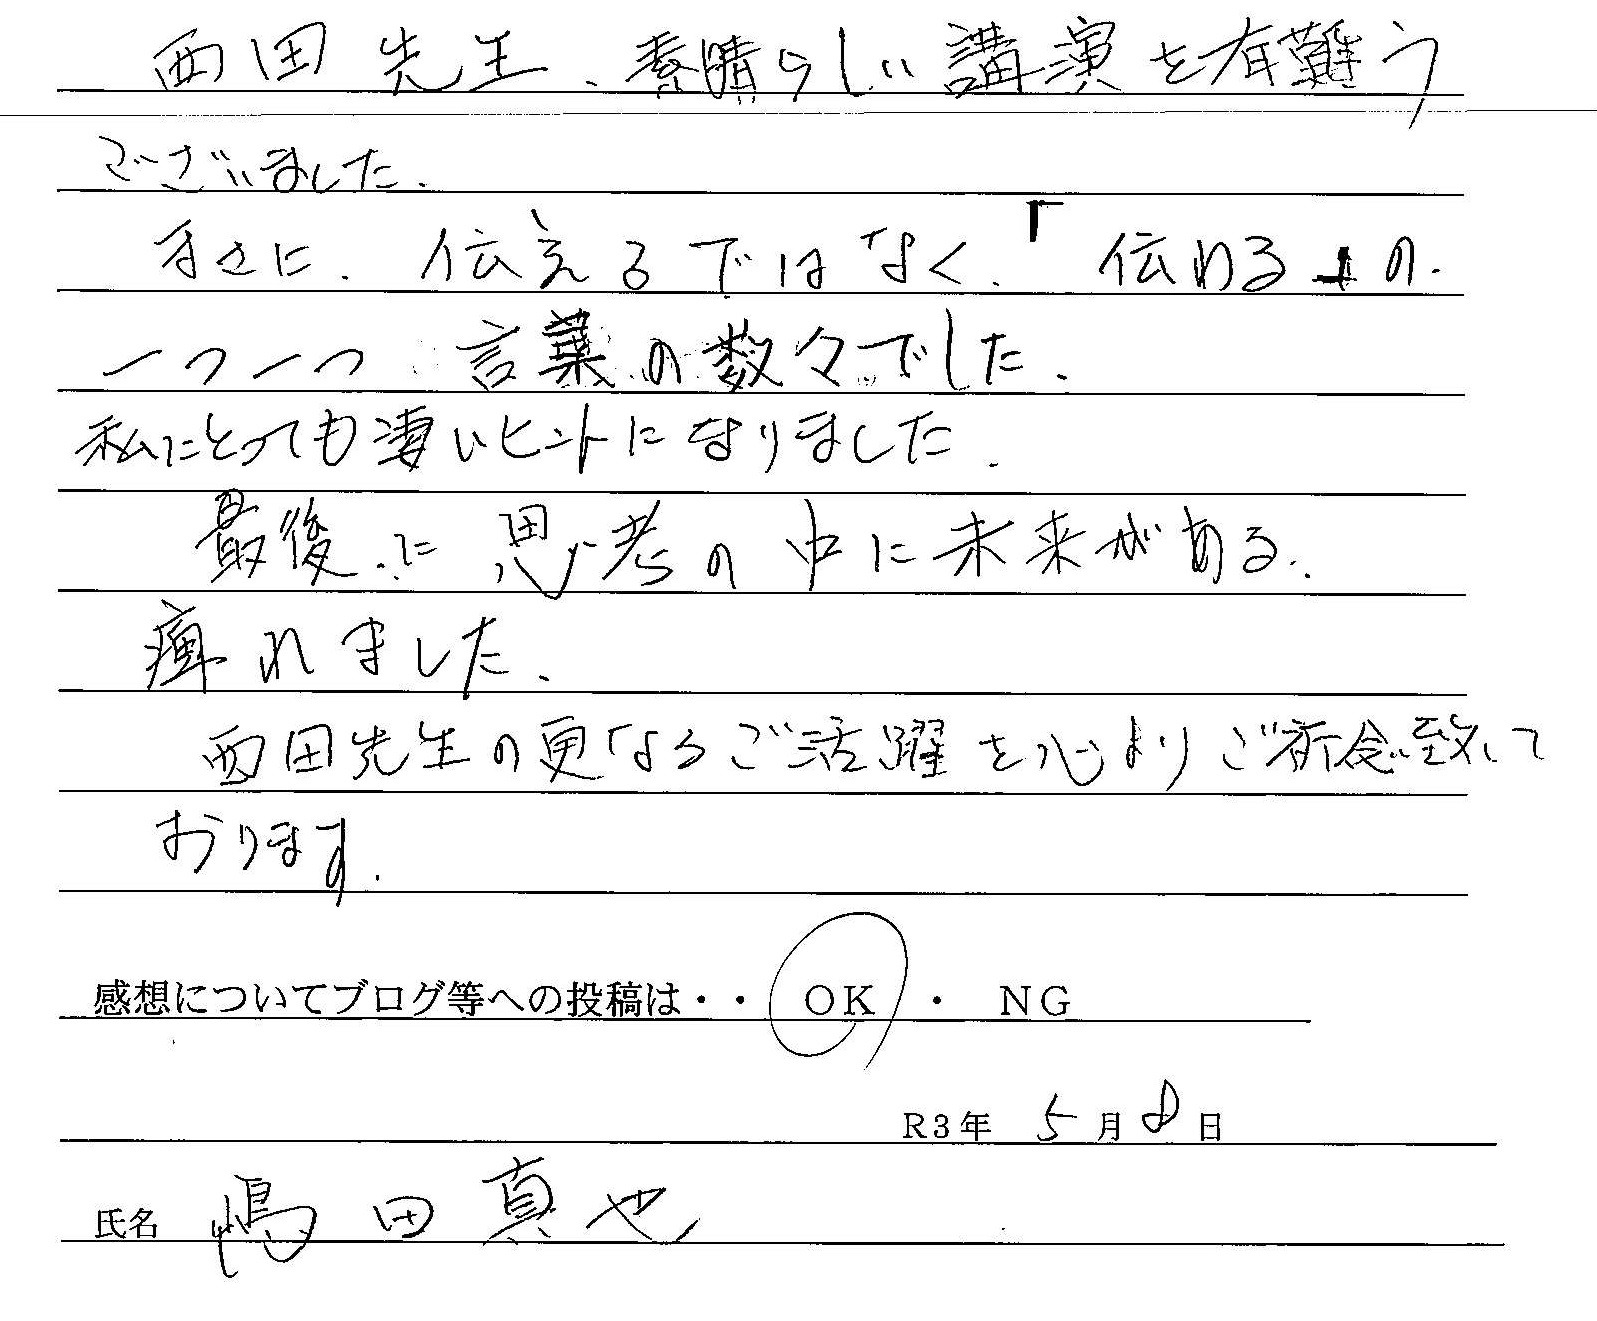 西田先生、素晴らしい講演を有難う
ございました.
まさに、伝える ではなく、「伝わる」の、
一つ一つ 言葉の数々でした.
私にとっても凄いヒントになりました.
最後に 思考の中に未来がある..
痺れました.
西田先生の更なるご活躍を心よりご祈念致して
おります.
感想についてブログ等への投稿は・・ OK ・ NG
R3年 5月 8日
氏名 嶋田真也